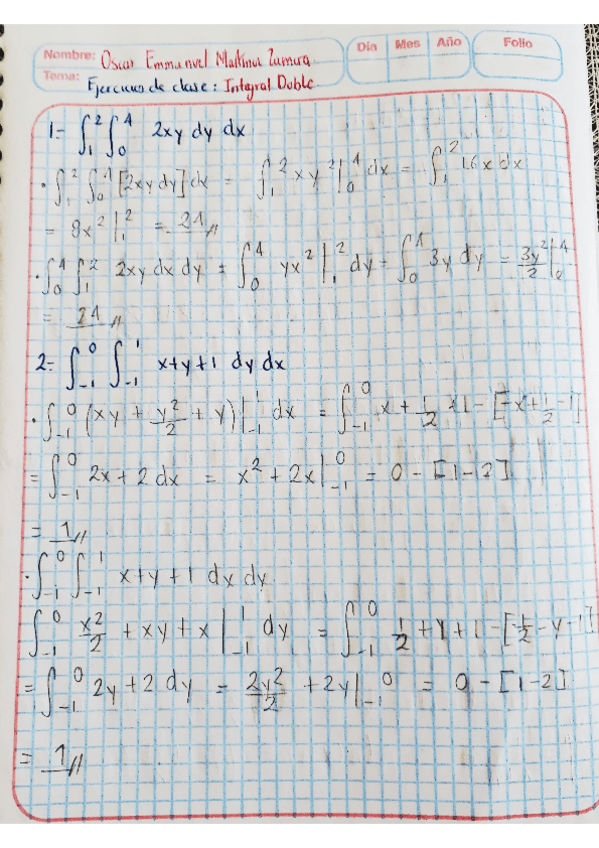 Nombre: Oscar Emmanuel Martinez Zamora Día Mes Año Folio
Tema: Ejercicios de clase: Integral Doble
1- ∫₁² ∫₀⁴ 2xy dy dx
· ∫₁² ∫₀⁴ [2xy dy] dx = ∫₁² xy² |₀⁴ dx = ∫₁² 16x dx
= 8x² |₁² = 24 //
· ∫₀⁴ ∫₁² 2xy dx dy = ∫₀⁴ yx² |₁² dy = ∫₀⁴ 3y dy = 3y²/2 |₀⁴
= 24 //
2- ∫₋₁⁰ ∫₋₁¹ x+y+1 dy dx
· ∫₋₁⁰ (xy + y²/2 + y) |₋₁¹ dx = ∫₋₁⁰ x + 1/2 + 1 - [-x + 1/2 - 1]
= ∫₋₁⁰ 2x + 2 dx = x² + 2x |₋₁⁰ = 0 - [1-2]
= 1 //
· ∫₋₁⁰ ∫₋₁¹ x+y+1 dx dy
∫₋₁⁰ x²/2 + xy + x |₋₁¹ dy = ∫₋₁⁰ 1/2 + y + 1 - [1/2 - y - 1]
= ∫₋₁⁰ 2y + 2 dy = 2y²/2 + 2y |₋₁⁰ = 0 - [1-2]
= 1 //